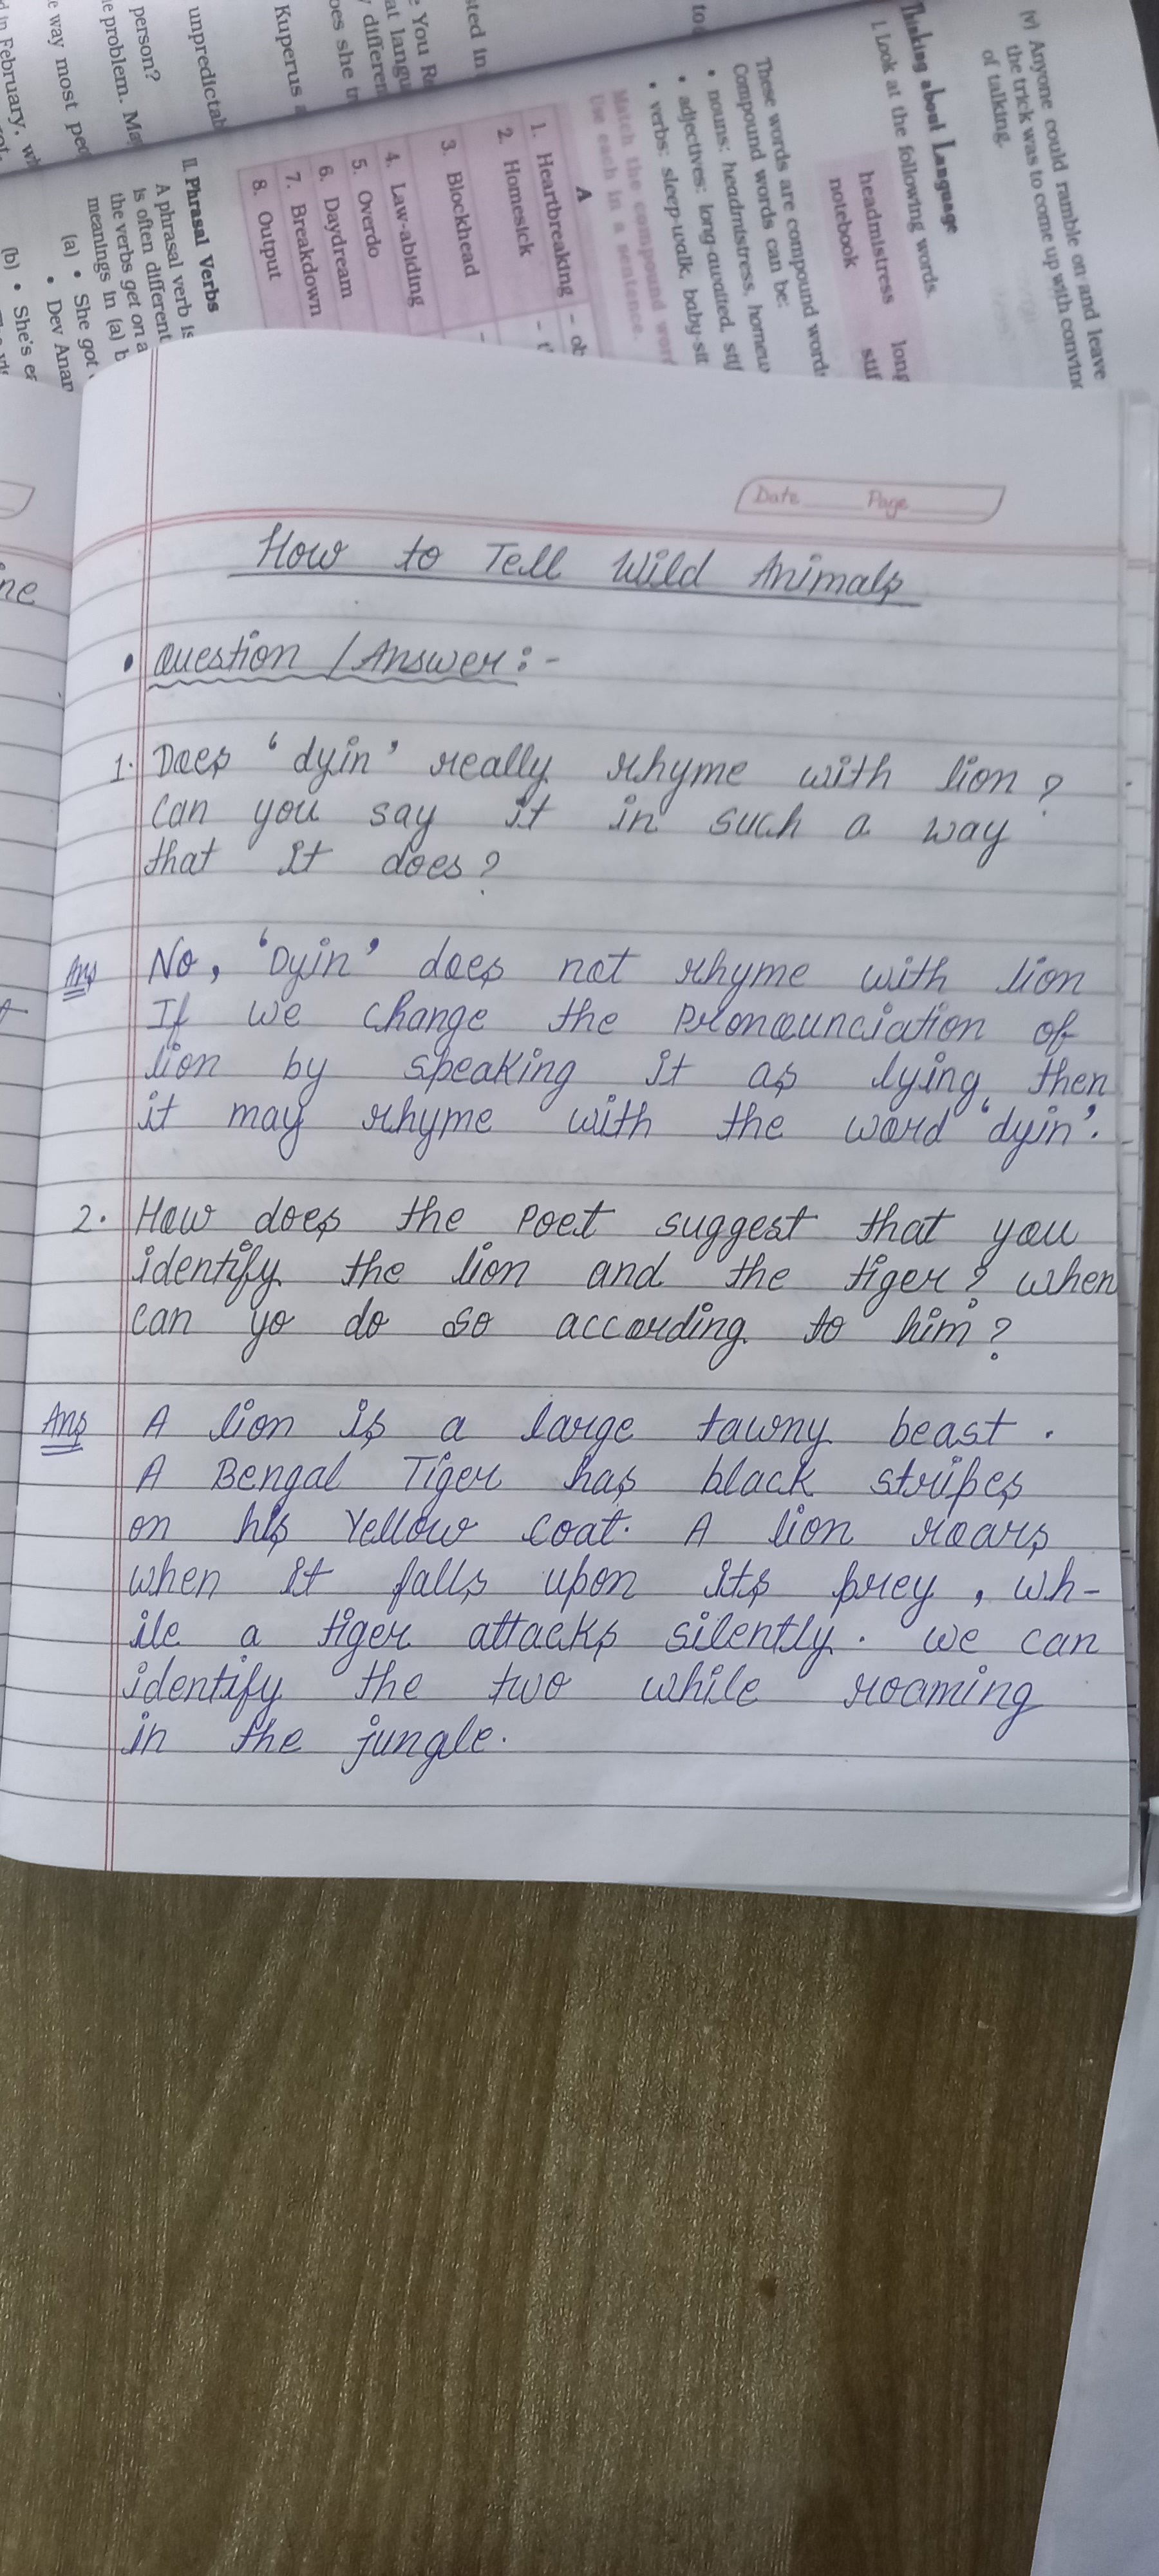 (v) Anyone could ramble on and leave
the trick was to come up with
of talking.
Thinking about Language
I. Look at the following words.
headmistress long
notebook
These words are compound words
Compound words can be:
• nouns: headmistress,
• adjectives: long-awaited,
• verbs: sleep-walk,
Match the compound
Use each in a sentence.
A
1. Heartbreaking –
2. Homesick –
3. Blockhead –
4. Law-abiding
5. Overdo
6. Daydream
7. Breakdown
8. Output
II. Phrasal Verbs
A phrasal verb is
is often different
the verbs get on a
meanings in (a)
(a) • She got
• Dev
(b) • She's
Kuperus
person?
problem.
way most
in February,
Date Page
How to Tell Wild Animals
• Question / Answer :-
1. Does 'dyin' really rhyme with lion?
can you say it in such a way
that it does?
Ans No, 'Dyin' does not rhyme with lion
If we change the Pronounciation of
lion by speaking it as lying, then
it may rhyme with the word 'dyin'.
2. How does the Poet suggest that you
identify the lion and the tiger? when
can yo do so according to him?
Ans A lion is a large tawny beast.
A Bengal Tiger has black stripes
on his Yellow coat. A lion roars
when it falls upon its prey, wh-
ile a tiger attacks silently. we can
identify the two while roaming
in the jungle.